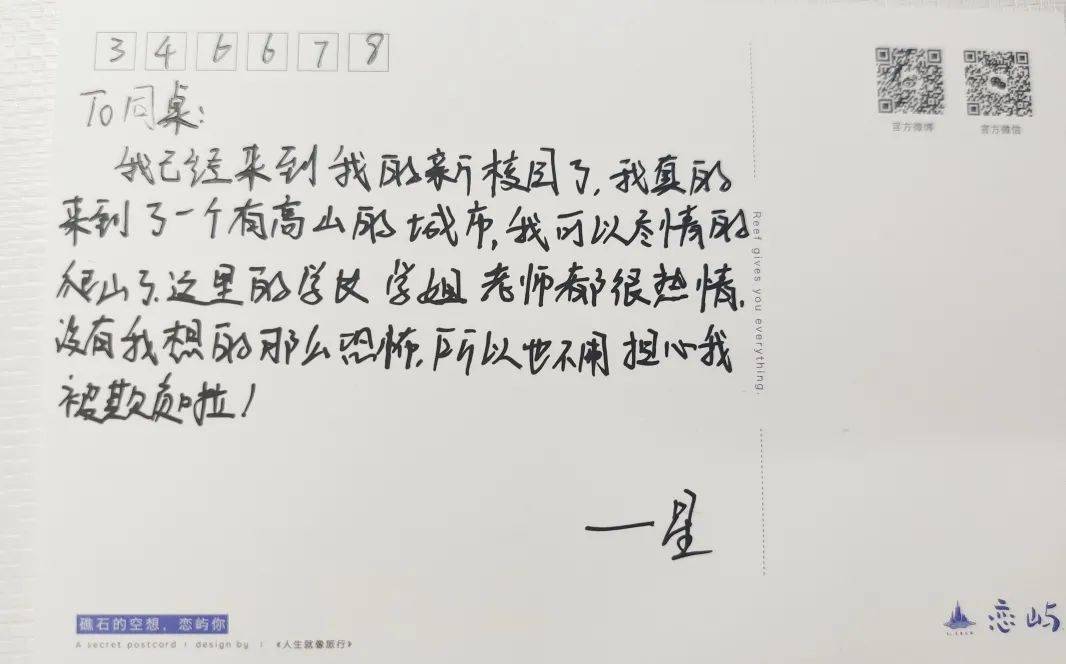 3 4 6 6 7 8
To同桌:
我已经来到我的新校园了,我真的
来到了一个有高山的城市,我可以尽情的
爬山了.这里的学长学姐老师都很热情,
没有我想的那么恐怖,所以也不用担心我
被欺负啦!
一星
官方微博
官方微信
Reef gives you everything.
礁石的空想,恋屿你
A secret postcard | design by | 《人生就像旅行》
恋屿